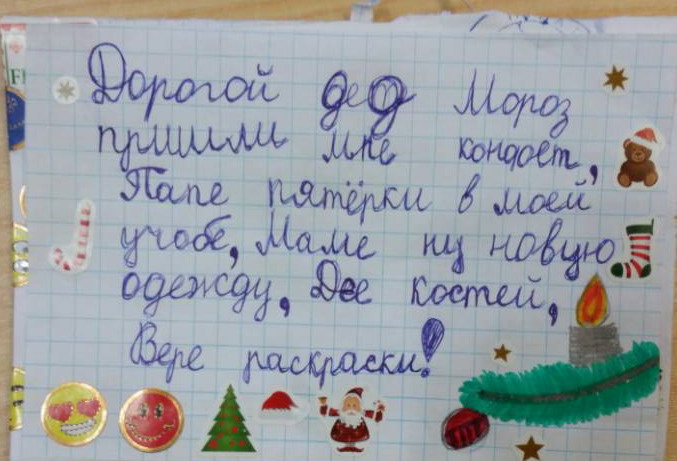 Дорогой дед Мороз
пришли мне конфет,
Папе пятёрки в моей
учобе, Маме ну новую
одежду, Дее костей,
Вере раскраски!